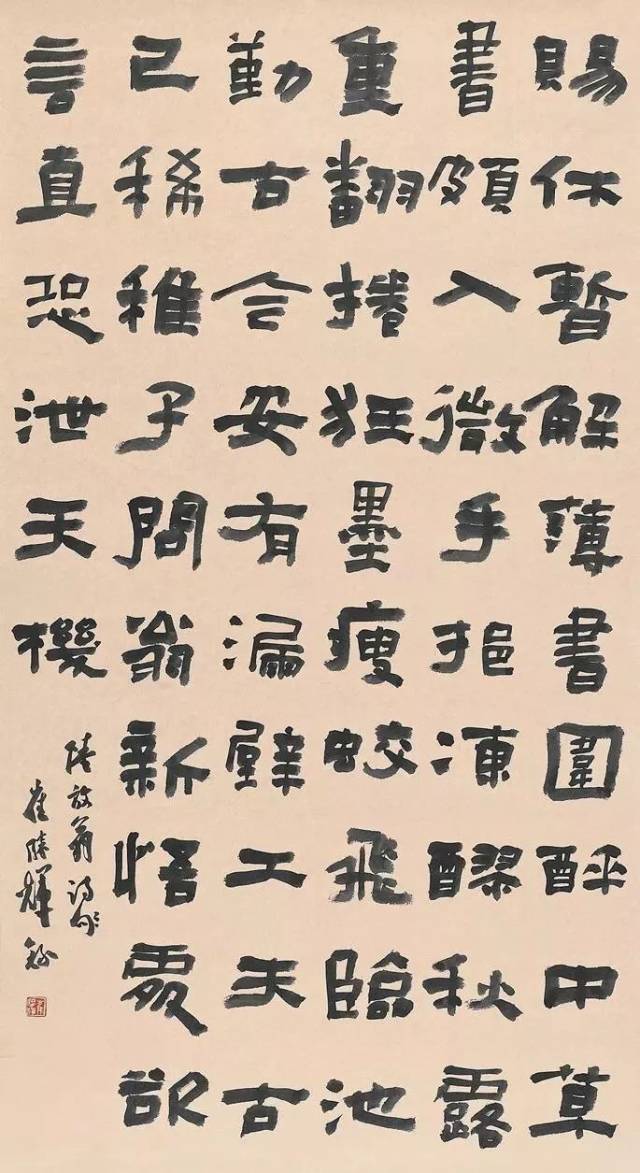 賜休暫解薄書圍酔中草
書頗入微手挹凍醪秋露
重翻捲狂墨瘦蛟飛臨池
勤古今安有漏壁工夫古
已稀稚子問翁新悟處欲
言直恐泄天機
陸放翁詩句
崔勝輝